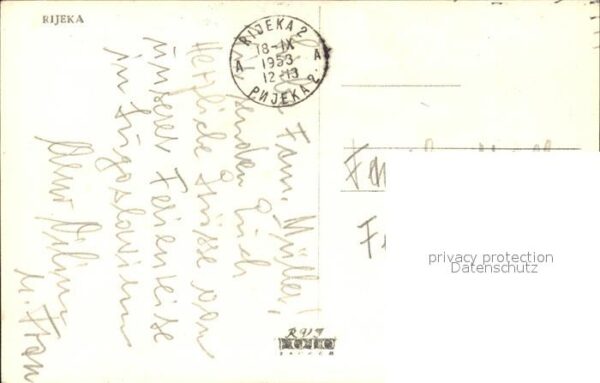 RIJEKA
RIJEKA 2
18-IX
1953
12-13
A A
РИЈЕКА 2
Fam. Müller!
senden Euch
Herzliche Grüsse von
unserer Ferienreise
in Jugoslawien
u. Frau
Fa
F
privacy protection
Datenschutz
FOTO
ZAGREB